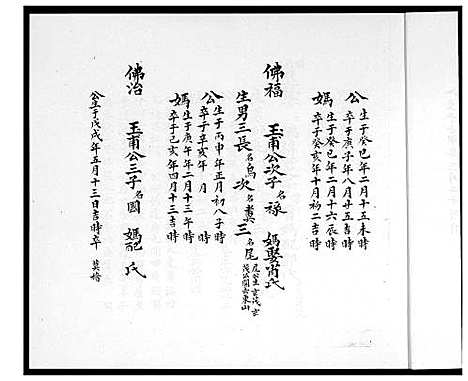 公生于癸巳年二月十五未時
卒于庚子年八月廿五吉時
媽生于癸巳年二月十六辰時
卒于癸亥年十月初二吉時
佛福 玉甫公次子名祿 媽娶 氏
生男三長名烏次名糞三名尾
公生于丙申年正月初八子時
卒于辛亥年 月 時
媽生于庚午年二月十三年時
卒于己亥年四月十二吉時
佛治 玉甫公三子名國 媽配 氏
公生于戊戌年五月十三日吉時卒 莫婚